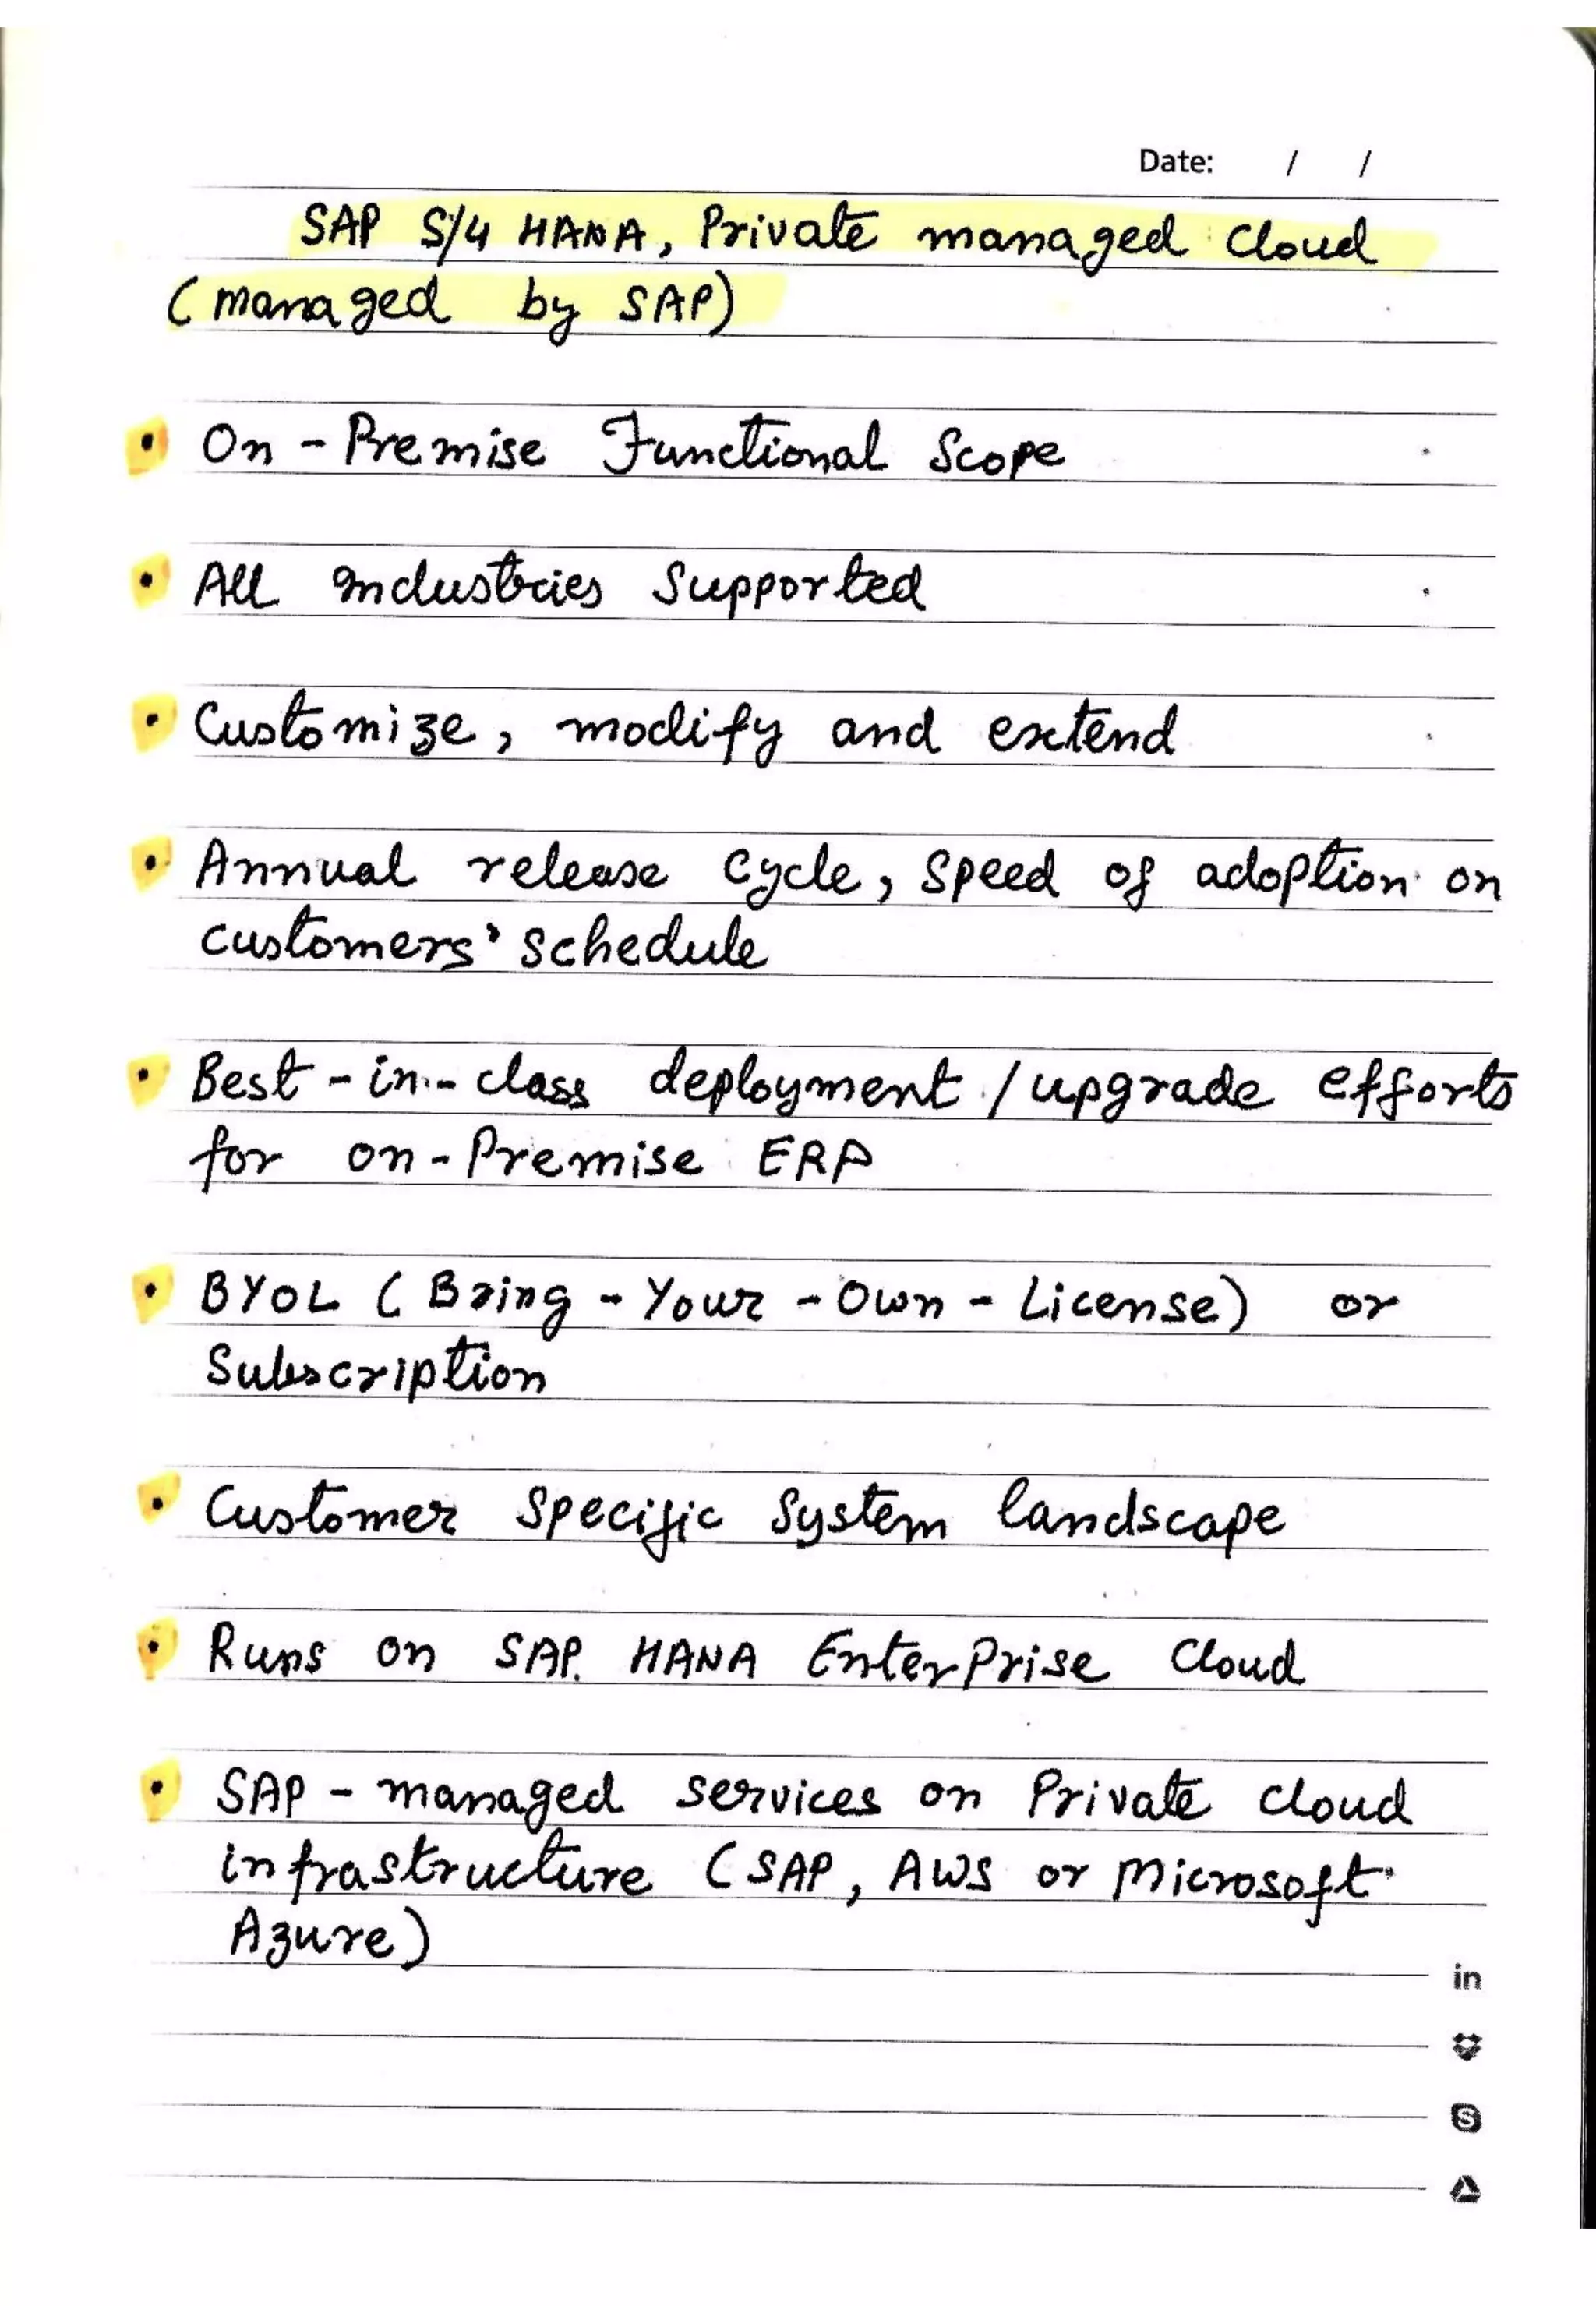 Date: / /
SAP S/4 HANA, Private managed Cloud
(managed by SAP)
• On-Premise Functional Scope
• All Industries Supported
• Customize, modify and extend
• Annual release Cycle, Speed of adoption on
customers' schedule
• Best-in-class deployment / upgrade efforts
for on-Premise ERP
• BYOL (Bring-Your-Own-License) or
Subscription
• Customer Specific System landscape
• Runs on SAP HANA Enterprise Cloud
• SAP-managed services on Private cloud
infrastructure (SAP, AWS or Microsoft
Azure)
in